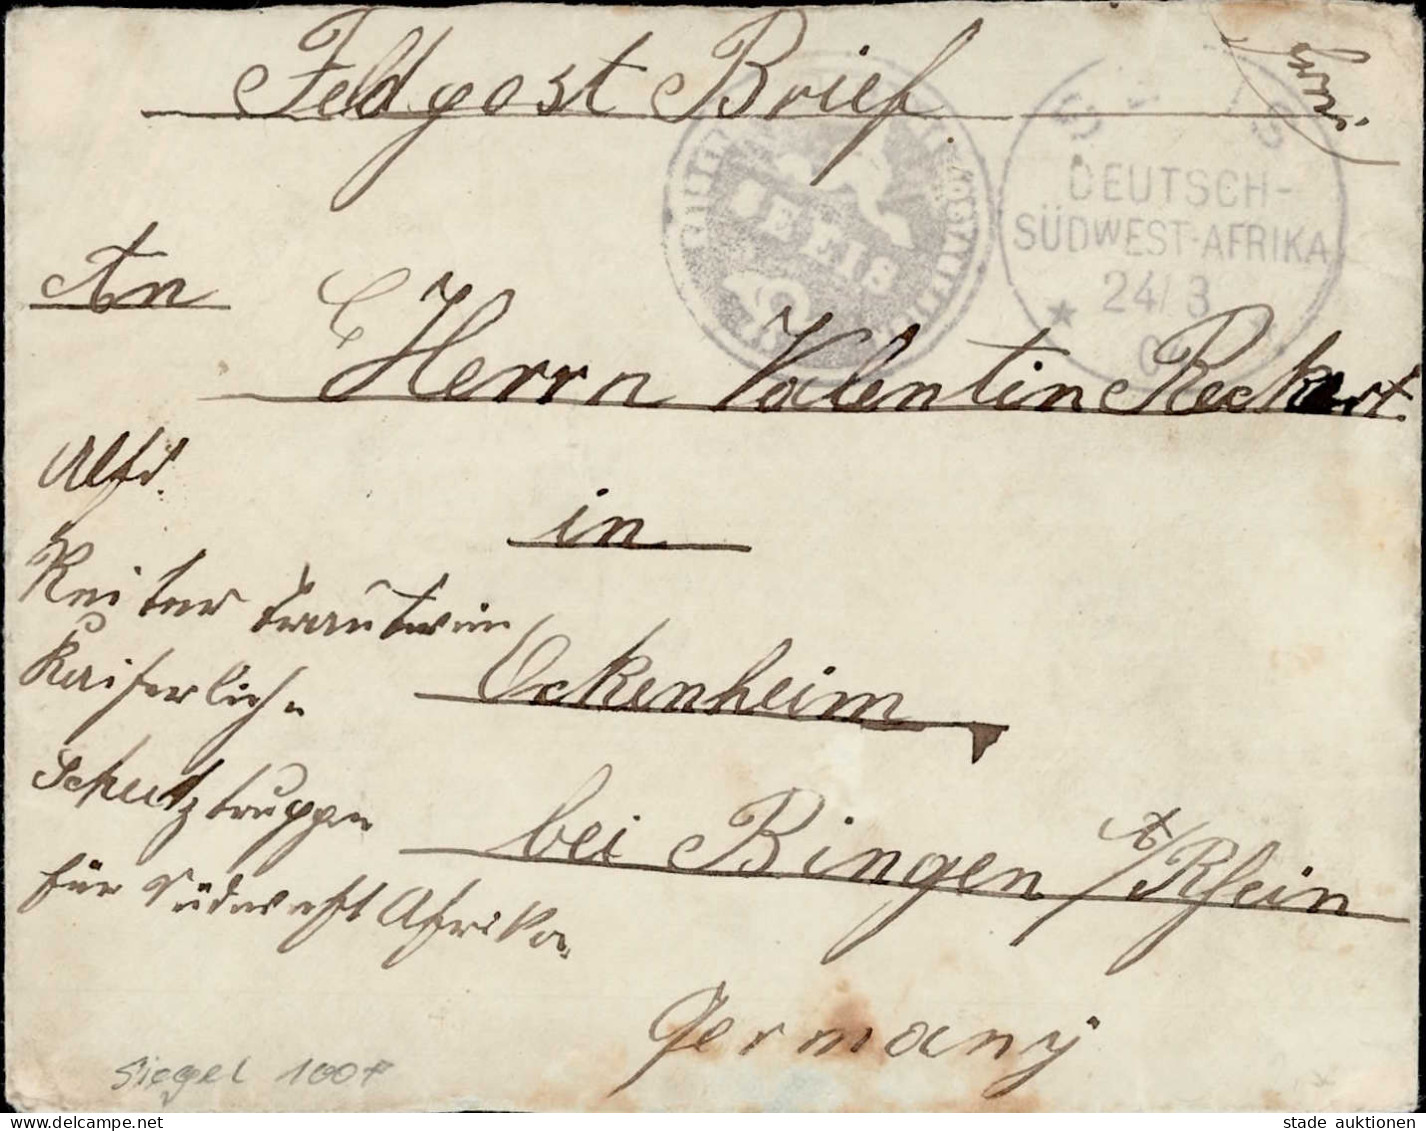 Feldpost Brief
SEEIS
DEUTSCH-
SÜDWEST-AFRIKA
24/3
An
Herrn Valentin Reckert
in
Ockenheim
bei Bingen A/Rhein
Germany
Abs.
Reiter Trautwein
Kaiserliche
Schutztruppe
für Südwest Afrika
Siegel 100
stade auktionen